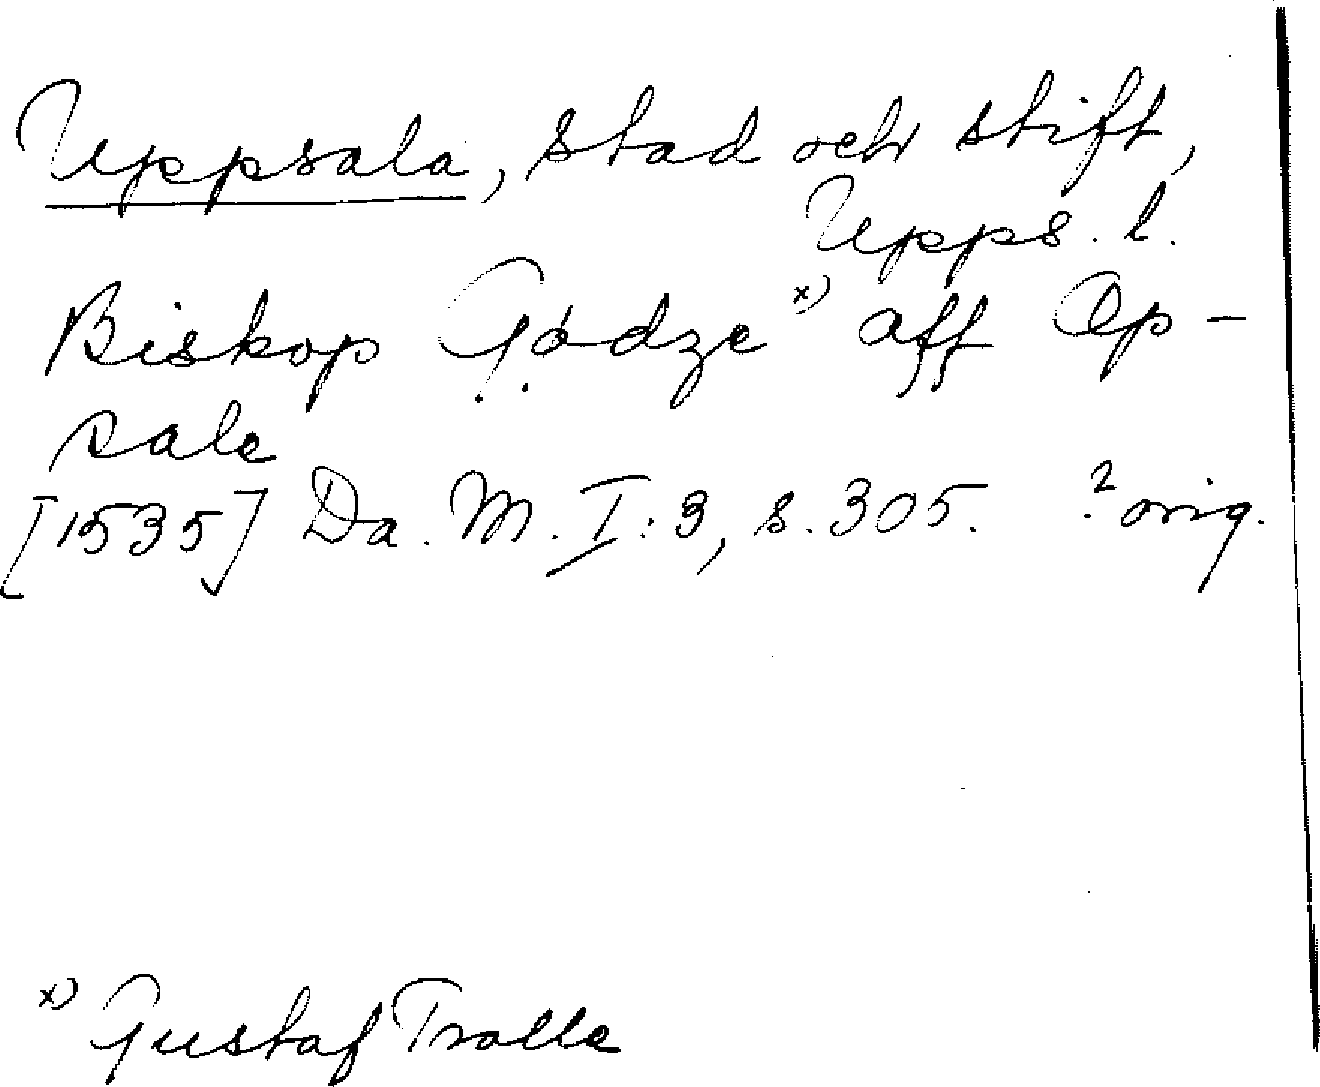 Uppsala, stad och stift,
Upps. l.
Biskop Gødze x) aff Op-
sale
[1535] Da. M. I: 3, s. 305. ? orig.
x) Gustaf Trolle